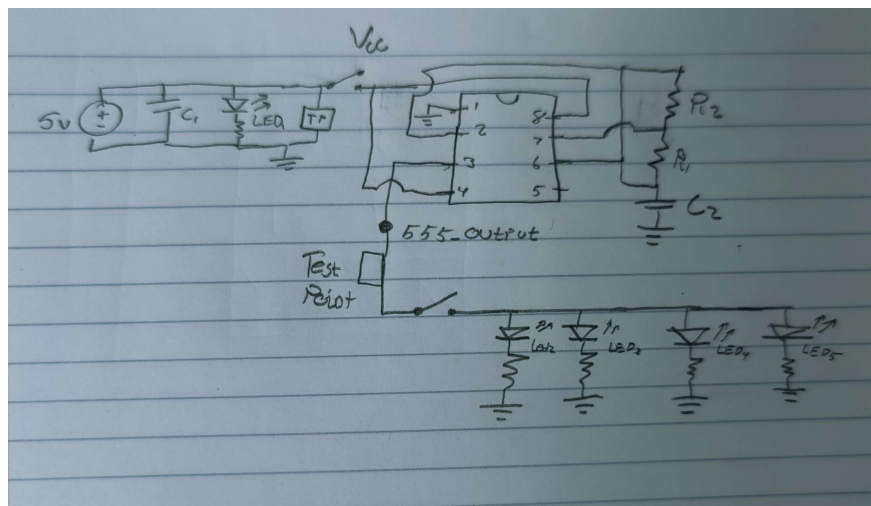 Vcc
5v
C1
LED1
TP
1
2
3
4
8
7
6
5
R2
R1
C2
555_OUTPUT
Test
Point
LED2
LED3
LED4
LED5